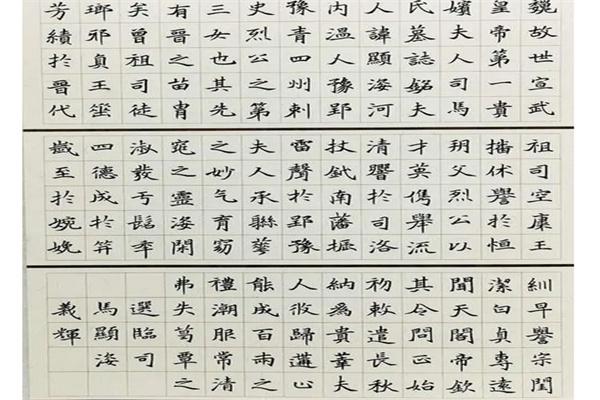 魏故世宣武
皇帝第一貴
嬪夫人司馬
氏墓誌銘夫
人諱顯姿河
內溫人豫郢
豫青四州刺
史烈公之第
三女也其先
有晉之苗胄
矣曾祖司徒
瑯邪貞王垂
芳績於晉代
祖司空康王
播休譽於恒
玥父烈公以
才英儁舉流
清響於司洛
杖鉞南藩振
雷聲於郢豫
夫人承聯華
之妙气育窈
窕之靈姿閑
淑發于髫年
四德成於笄
歲至於婉娩
紃早譽宗閨
潔白貞專遠
聞天閣帝欽
其令問正始
初敕遣長秋
納爲貴華夫
人攸歸遘止
能成百兩之
禮潮服常清
弗失葛覃之
選臨司
馬顯姿
義輝